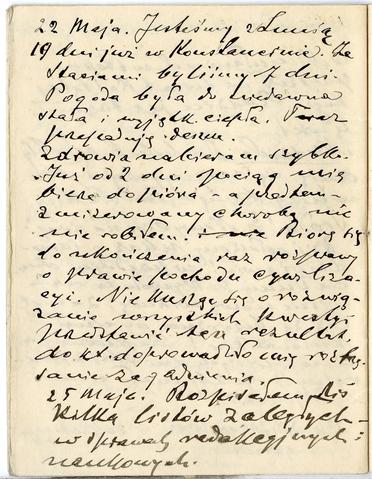 22 Maja. Jesteśmy z Lunią
19 dni już w Konstancinie. Ze
Stasiami byliśmy 7 dni.
Pogoda była do niedawna
stała i wyjątk. ciepła. Teraz
przepadują deszcze.
Zdrowia nabieram szybko.
Już od 2 dni pociąg mię
bierze do pióra - a przedtem
zmizerowany chorobą nic
nie robiłem. Biorę się
do ukończenia raz rozprawy
o prawie pochodu cywiliza-
cyi. Nie kuszę się o rozwią-
zanie wszystkich kwestyi
przedstawić rezultat,
do kt. doprowadziło mię roztrzą-
sanie zagadnienia.
25 Maja. Rozpisałem dziś
kilka listów zaległych
w sprawach redakcyjnych i
naukowych.